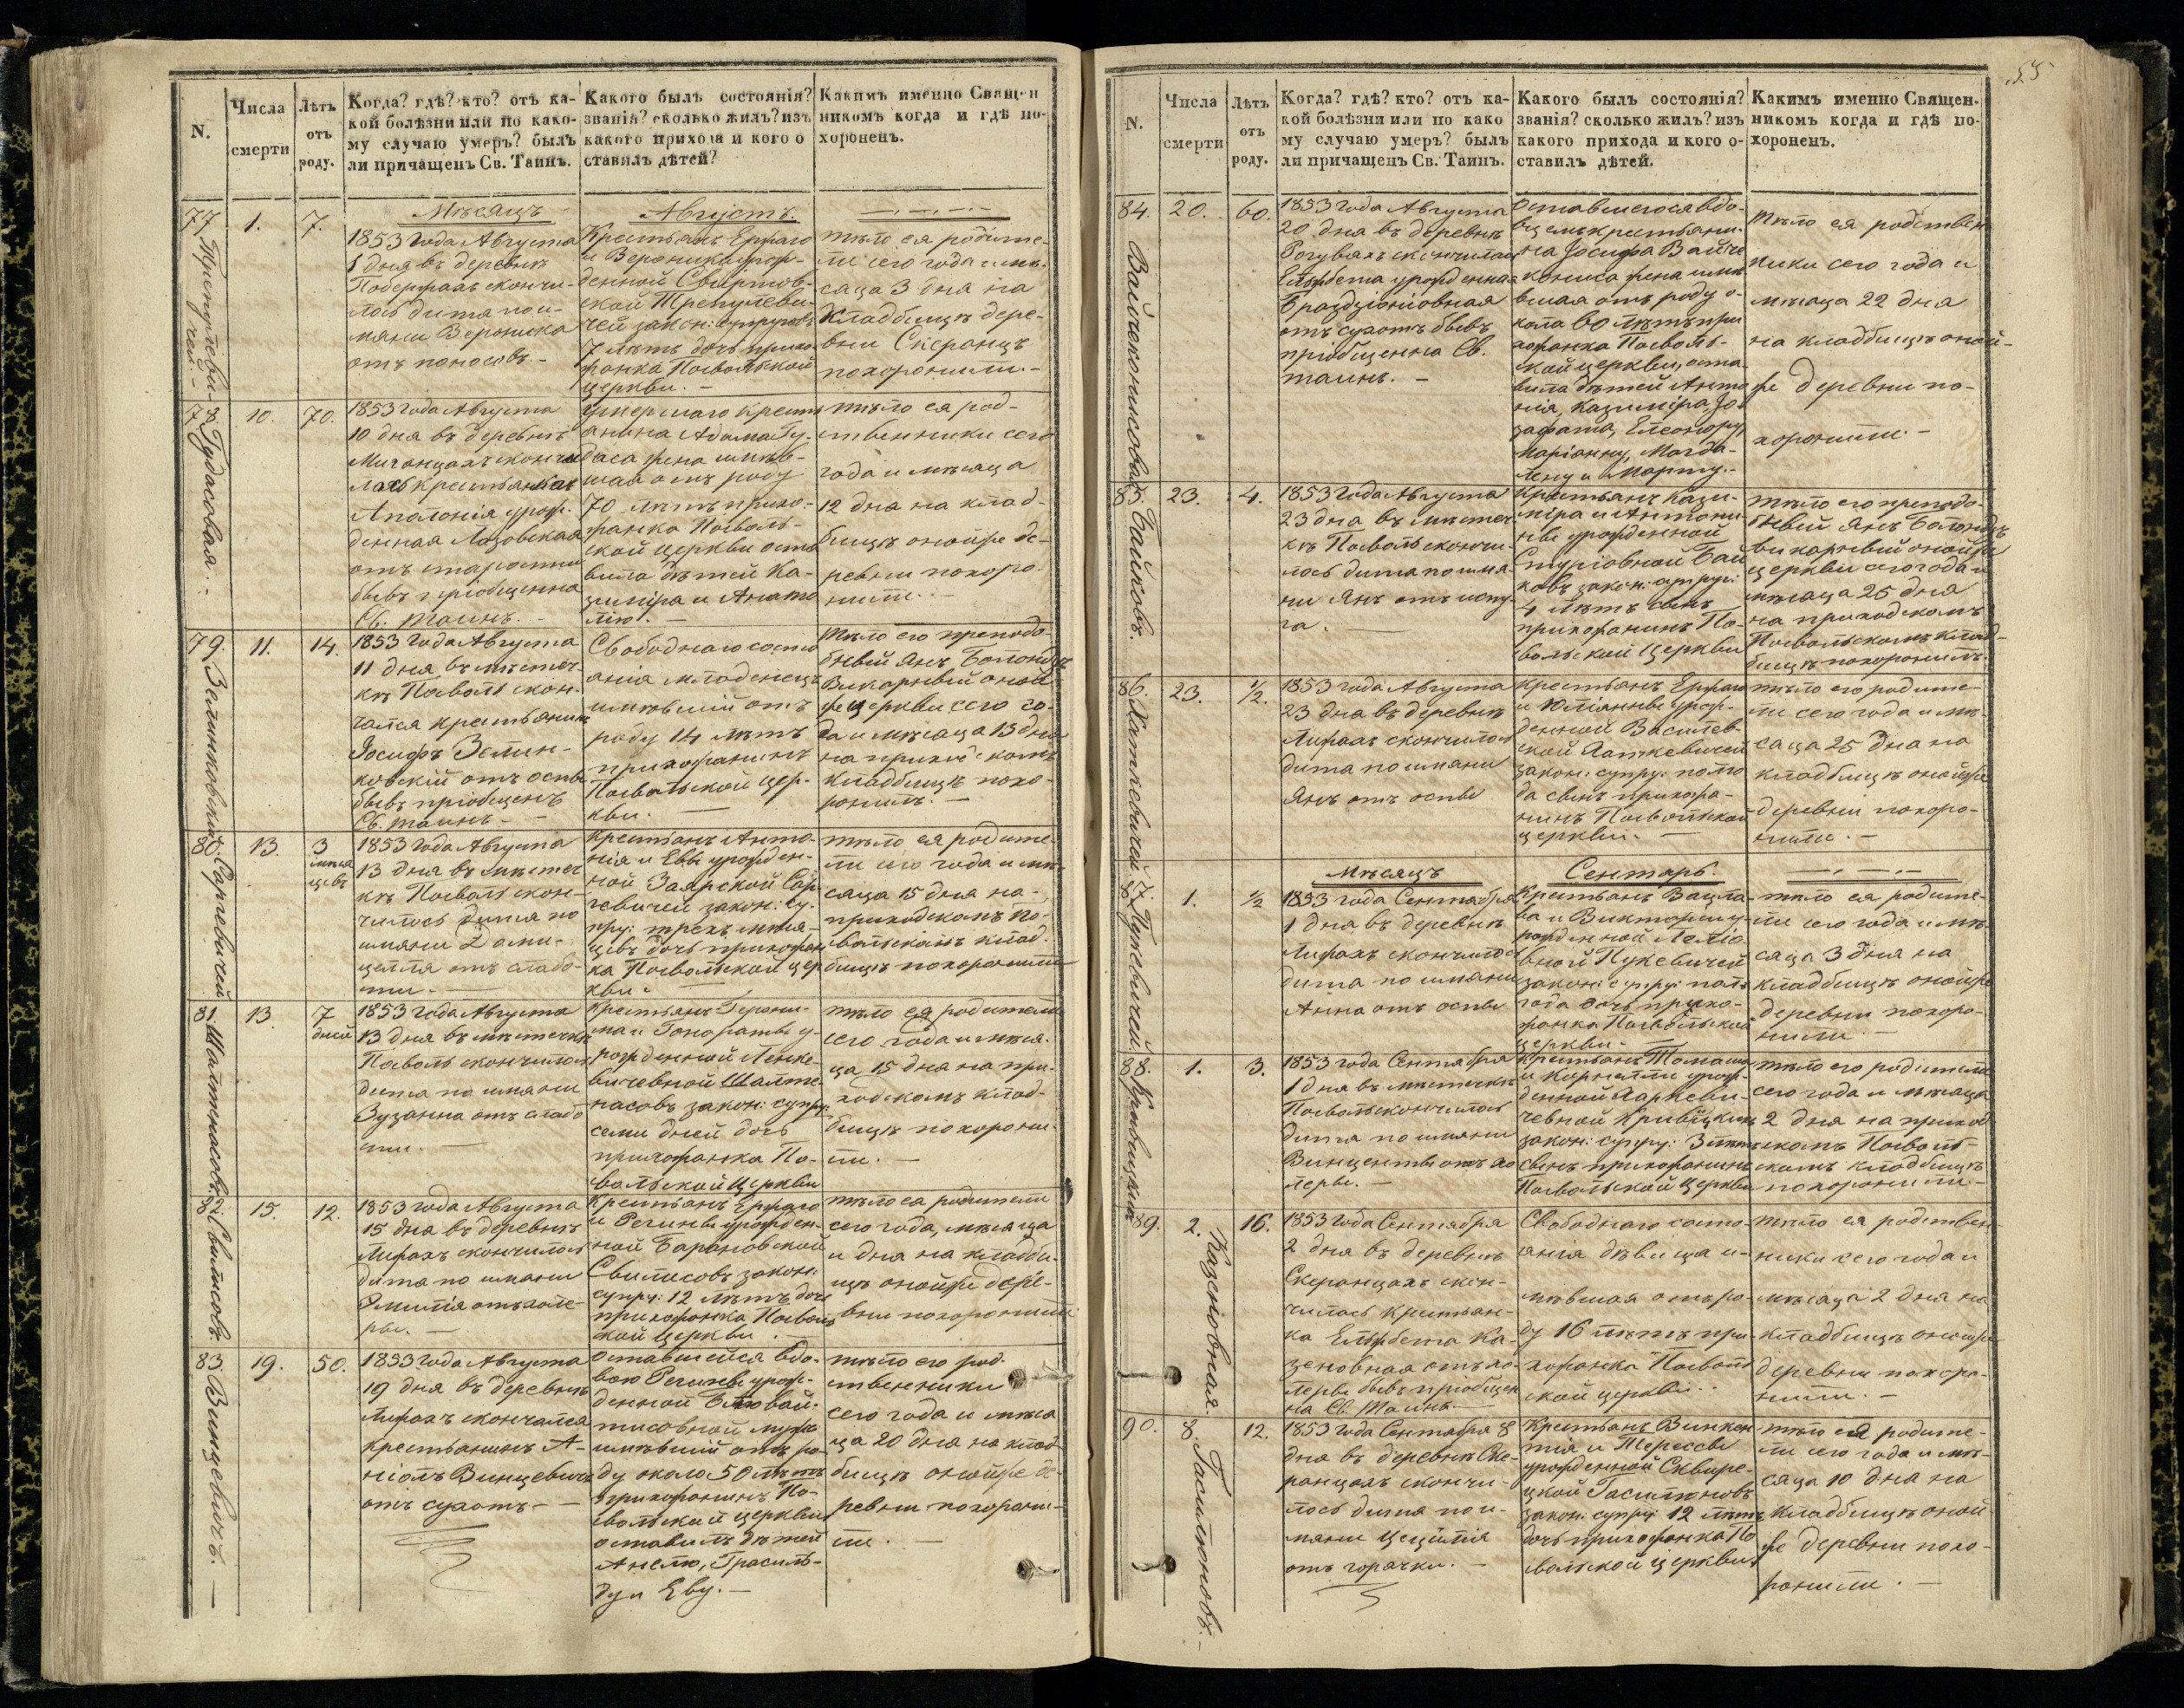 55
N.
Числа
смерти
Лѣтъ
отъ
роду.
Когда? гдѣ? кто? отъ ка-
кой болѣзни или по како-
му случаю умеръ? былъ
ли причащенъ Св. Таинъ.
Какого былъ состоянія?
званія? сколько жилъ? изъ
какого прихода и кого о
ставилъ дѣтей?
Какимъ именно Священ
никомъ когда и гдѣ по-
хороненъ.
Мѣсяцъ
Августъ.
77
1.
7.
1853 года Августа
1 дня въ деревнѣ
скончи-
лось дитя по и-
мяни Вероника
отъ поносовъ.-
Крестьянъ
и Вероники урож-
денной
закон: супруговъ
7 лѣтъ дочь прихо
жанка Посвольской
церкви.-
тѣло ея родите-
ли сего года и мѣ-
сяца 3 дня на
кладбищѣ дере-
вни Скеранцъ
похоронили.-
78
Гудасовая.
10.
70.
1853 года Августа
10 дня въ деревнѣ
сконча
лась крестьянка
Аполонія урож-
денная Лозовская
отъ старости
бывъ пріобщенна
Св. таинъ.
умершаго кресть
янина Адама Гу-
даса жена имѣв-
шая отъ роду
70 лѣтъ прихо-
жанка Посволь-
ской церкви оста
вила дѣтей Ка-
зиміра и
тѣло ея род-
ственники сего
года и мѣсяца
12 дня на клад-
бищѣ онойже де-
ревни похоро-
нили.
79.
Зелинковскій
11.
14.
1853 года Августа
11 дня въ мѣстеч-
кѣ Посволѣ скон-
чался крестьянинъ
Іосифъ Зелин-
ковскій отъ оспы
бывъ пріобщенъ
Св. таинъ.-
Свободнаго состо
янія младенецъ
имѣвшій отъ
роду 14 лѣтъ
прихожанинъ
Посвольской цер-
кви.
тѣло его преподо-
бный Янъ
Викарный оной
же церкви сего го-
да и мѣсяца 13 дня
на приходскомъ
кладбищѣ похо-
ронилъ.-
80.
Саргевичей
13.
3
мѣся
цевъ
1853 года Августа
13 дня въ мѣстеч
кѣ Посволѣ скон-
чилось дитя по
имяни Доми-
целля отъ слабо-
сти.-
крестьянъ Анто-
нія и Евы урожден-
ной Заярской Сар
гевичей закон: су-
пру: трехъ мѣся-
цевъ дочь прихожан
ка Посвольской цер
кви.
тѣло ея родите-
ли сего года и мѣ-
сяца 15 дня на
приходскомъ По-
свольскомъ клад-
бищѣ похоронили
81.
Шалтенасовъ
13.
7
дней
1853 года Августа
13 дня въ мѣстечкѣ
Посволѣ скончилось
дитя по имяни
Зузанна отъ слабо
сти.
Крестьянъ Герони-
ма и Гонораты у-
рожденной Ленке-
вичевной Шалте-
насовъ закон: супру:
семи дней дочь
прихожанка По-
свольской церкви
тѣло ея родители
сего года и мѣся-
ца 15 дня на при-
ходскомъ клад-
бищѣ похорони-
ли.-
82.
Свилисовъ.
15.
12.
1853 года Августа
15 дня въ деревнѣ
скончилось
дитя по имяни
Эмилія отъ холе-
ры.-
крестьянъ
и Регины урожден-
ной Барановской
Свилисовъ закон:
супру: 12 лѣтъ дочь
прихожанка Посволь
ской церкви.
тѣло ея родители
сего года, мѣсяца
и дня на кладби-
щѣ онойже дере-
вни похоронили
83.
Винцевичъ.-
19.
50.
1853 года Августа
19 дня въ деревнѣ
скончался
крестьянинъ А-
Винцевичъ
отъ сухотъ.-
оставшейся вдо-
вою Регины урож-
денной
мужъ
имѣвшій отъ ро-
ду около 50 лѣтъ
прихожанинъ По-
свольской церкви
оставилъ дѣтей
Анелю,
и Еву.-
тѣло его род-
ственники
сего года и мѣся
ца 20 дня на клад
бищѣ онойже де-
ревни похорони-
ли.-
N.
Числа
смерти
Лѣтъ
отъ
роду.
Когда? гдѣ? кто? отъ ка-
кой болѣзни или по како
му случаю умеръ? былъ
ли причащенъ Св. Таинъ.
Какого былъ состоянія?
званія? сколько жилъ? изъ
какого прихода и кого о-
ставилъ дѣтей.
Какимъ именно Священ-
никомъ когда и гдѣ по-
хороненъ.
84.
20.
60.
1853 года Августа
20 дня въ деревнѣ
скончилась
Ельжбета урожденная
отъ сухотъ бывъ
пріобщенна Св.
таинъ.-
Оставшегося вдо-
вцемъ крестьяни-
на Іосифа
жена имѣ
вшая отъ роду о-
кола 60 лѣтъ при
хожанка Посволь-
ской церкви, оста
вила дѣтей Анто
нія, Казиміра, Іо-
зафата, Елеонору,
Маріанну, Магда-
лену и Марту.-
тѣло ея родствен
ники сего года и
мѣсяца 22 дня
на кладбищѣ оной-
же деревни по-
хоронили.-
85.
Байковъ.
23.
4.
1853 года Августа
23 дня въ мѣстеч-
кѣ Посволѣ скончи-
лось дитя по имя-
ни Янъ отъ испу-
га.
крестьянъ Кази-
міра и Антони-
ны урожденной
Бай
ковъ закон: супру:
4 лѣтъ сынъ
прихожанинъ По-
свольской церкви
тѣло его преподо-
бный Янъ
викарный онойже
церкви сего года и
мѣсяца 25 дня
на приходскомъ
Посвольскомъ клад-
бищѣ похоронилъ.
86.
23.
½.
1853 года Августа
23 дня въ деревнѣ
скончилось
дитя по имяни
Янъ отъ оспы
крестьянъ
и Юліянны урож-
денной Василев-
ской
закон: супру: полго
да сынъ прихожа-
нинъ Посвольской
церкви.
тѣло его родите-
ли сего года и мѣ-
сяца 25 дня на
кладбищѣ онойже
деревни похоро-
нили.-
Мѣсяцъ
Сентярь.
87.
Пукевичей.
1.
½
1853 года Сентября
1 дня въ деревнѣ
скончилось
дитя по имяни
Анна отъ оспы
Крестьянъ Вацла-
ва и Викторіи у-
рожденной
Пукевичей
закон: супру: полъ
года дочь прихо-
жанка Посвольской
церкви.
тѣло ея родите-
ли сего года и мѣ-
сяца 3 дня на
кладбищѣ онойже
деревни похоро-
нили
88.
1.
3.
1853 года Сентября
1 дня въ мѣстечкѣ
Посволѣ скончилось
дитя по имяни
Винценты отъ хо
леры.-
Крестьянъ Томаша
и Корнелли урож-
денной
закон: супру: 3 лѣтъ
сынъ прихожанинъ
Посвольской церкви
тѣло его родители
сего года и мѣсяца
2 дня на приход
скомъ Посволь-
скомъ кладбищѣ
похоронили.-
89.
2.
16.
1853 года Сентября
2 дня въ деревнѣ
Скеранцахъ скон-
чилась крестьян-
ка Ельжбета Ка-
отъ хо-
леры бывъ пріобщен
на Св. Таинъ.-
Свободнаго состо-
янія дѣвица и-
мѣвшая отъ ро-
ду 16 лѣтъ при-
хожанка Посволь
ской церкви..
тѣло ея родствен
ники сего года и
мѣсяца 2 дня на
кладбищѣ онойже
деревни похоро-
нили.-
90.
8.
12.
1853 года Сентября 8
дня въ деревнѣ Ске-
ранцахъ скончи-
лось дитя по и-
мяни Цецилія
отъ горячки.-
Крестьянъ Винкен
тія и Терессы
урожденной
закон: супру: 12 лѣтъ
дочь прихожанка По
свольской церкви
тѣло ея родите-
ли сего года и мѣ-
сяца 10 дня на
кладбищѣ оной-
же деревни похо-
ронили.-